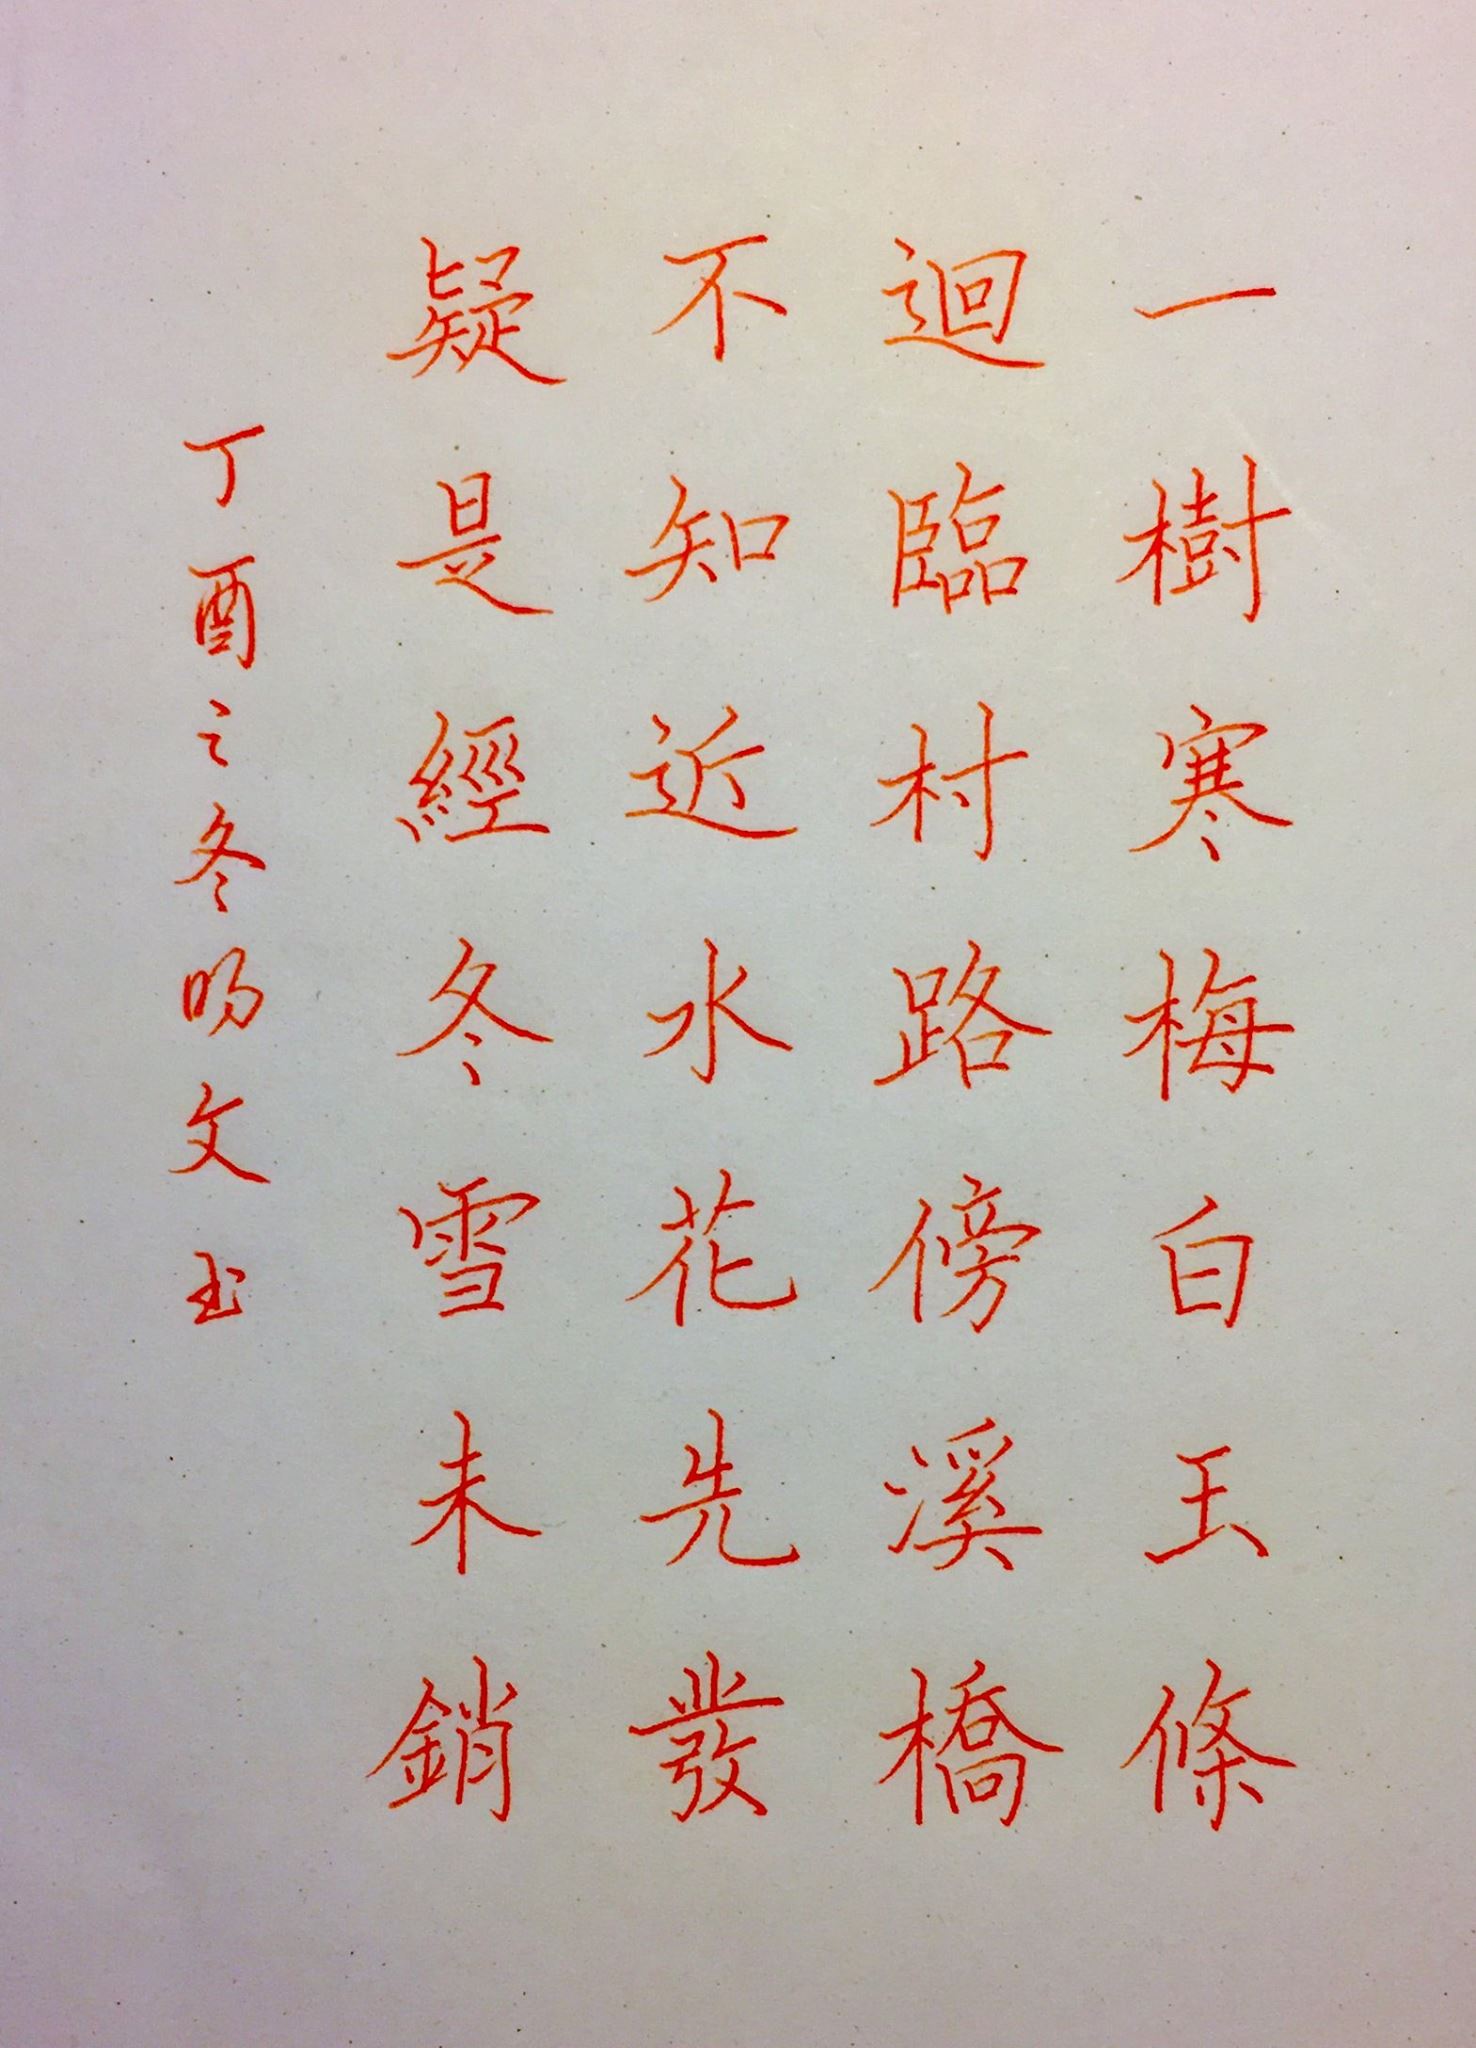 一樹寒梅白玉條
迴臨村路傍溪橋
不知近水花先發
疑是經冬雪未銷
丁酉之冬昒文书